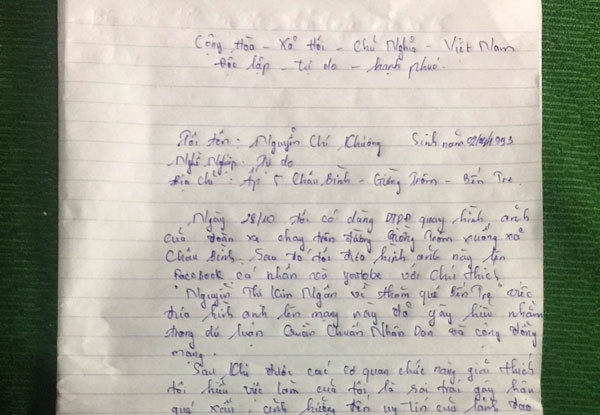 Cộng Hòa - Xã Hội - Chủ Nghĩa - Việt Nam
Độc lập - tự do - hạnh phúc.
Tôi tên: Nguyễn Chí Khương Sinh năm 1993
Nghề Nghiệp: Tự do
Địa chỉ: Ấp 5 Châu Bình - Giồng Trôm - Bến Tre.
Ngày 28/10 tôi có dùng ĐTDĐ quay hình ảnh
của đoàn xe chạy trên đường Giồng Trôm xuống xã
Châu Bình. Sau đó tôi đưa hình ảnh này lên
Facebook cá nhân và youtobe với chú thích
"Nguyễn Thị Kim Ngân về thăm quê Bến Tre" việc
đưa hình ảnh lên mạng này đã gây hiểu nhầm
trong dư luận Quần Chúng Nhân Dân và cộng đồng
mạng.
Sau khi được các cơ quan chức năng giải thích
tôi hiểu việc làm của tôi là sai trái gây hậu
quả xấu, ảnh hưởng đến uy tín của lãnh đạo